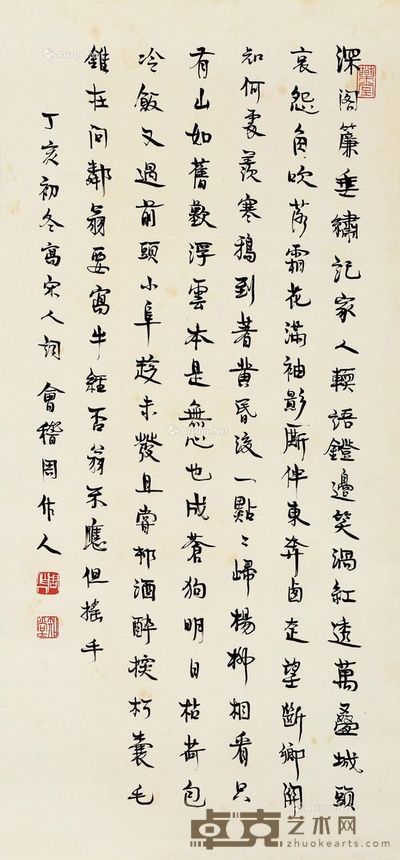 深閣簾垂繡記家人輭語鐙邊笑渦紅透萬疊城頭
哀怨角吹落霜花滿袖影廝伴東奔西走望斷鄉關
知何處羨寒鴉到著黃昏後一點〻歸楊柳相看只
有山如舊歎浮雲本是無心也成蒼狗明日枯荷包
冷飯又過前頭小阜趁未發且嘗邨酒醉探枵囊毛
錐在問鄰翁要寫牛經否翁不應但搖手
丁亥初冬寫宋人詞 會稽周作人
卓克艺术网
www.zhuokearts.com